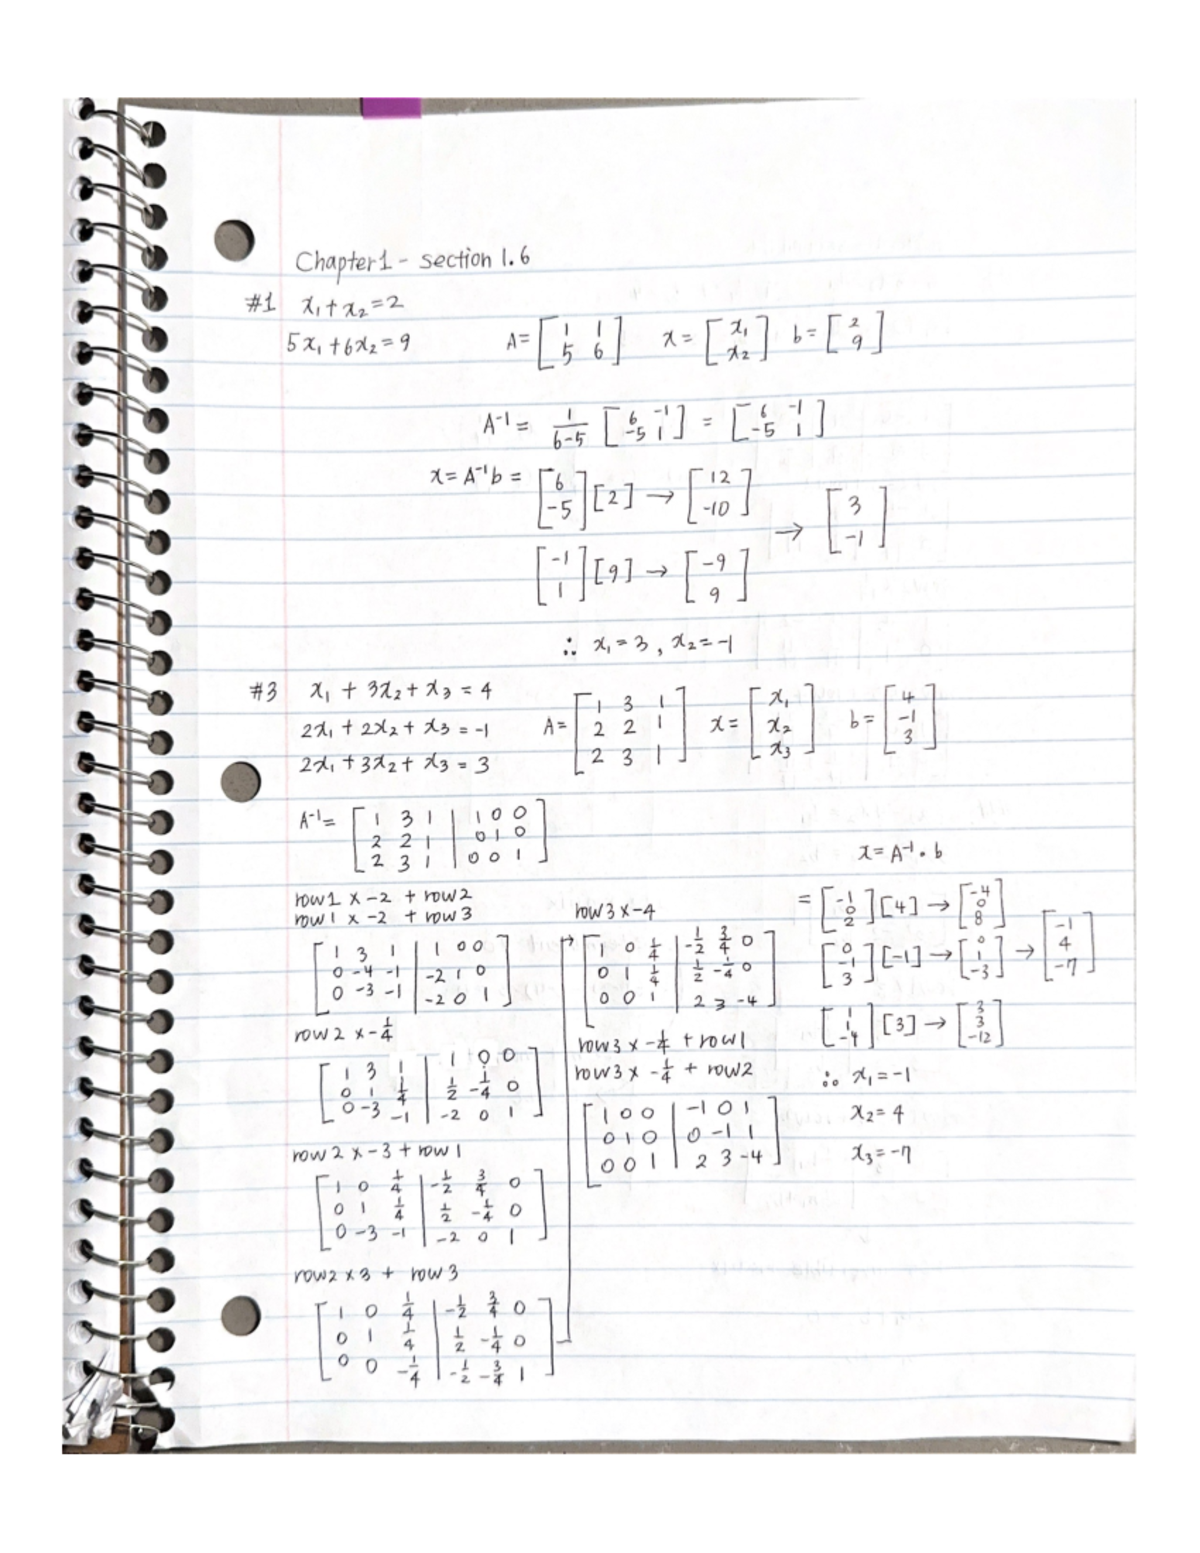 Chapter 1 - section 1.6
#1 x₁ + x₂ = 2
5x₁ + 6x₂ = 9 A = [1 1; 5 6] x = [x₁; x₂] b = [2; 9]
A⁻¹ = 1/(6-5) [6 -1; -5 1] = [6 -1; -5 1]
x = A⁻¹b = [6; -5][2] → [12; -10]
[-1; 1][9] → [-9; 9]
→ [3; -1]
∴ x₁ = 3, x₂ = -1
#3 x₁ + 3x₂ + x₃ = 4
2x₁ + 2x₂ + x₃ = -1
2x₁ + 3x₂ + x₃ = 3
A = [1 3 1; 2 2 1; 2 3 1] x = [x₁; x₂; x₃] b = [4; -1; 3]
A⁻¹ = [1 3 1 | 1 0 0; 2 2 1 | 0 1 0; 2 3 1 | 0 0 1]
row1 x -2 + row2
row1 x -2 + row3
[1 3 1 | 1 0 0; 0 -4 -1 | -2 1 0; 0 -3 -1 | -2 0 1]
row2 x -1/4
[1 3 1 | 1 0 0; 0 1 1/4 | 1/2 -1/4 0; 0 -3 -1 | -2 0 1]
row2 x -3 + row1
[1 0 1/4 | -1/2 3/4 0; 0 1 1/4 | 1/2 -1/4 0; 0 -3 -1 | -2 0 1]
row2 x 3 + row3
[1 0 1/4 | -1/2 3/4 0; 0 1 1/4 | 1/2 -1/4 0; 0 0 -1/4 | -1/2 -3/4 1]
row3 x -4
[1 0 1/4 | -1/2 3/4 0; 0 1 1/4 | 1/2 -1/4 0; 0 0 1 | 2 3 -4]
row3 x -1/4 + row1
row3 x -1/4 + row2
[1 0 0 | -1 0 1; 0 1 0 | 0 -1 1; 0 0 1 | 2 3 -4]
x = A⁻¹ · b
= [-1; 0; 2][4] → [-4; 0; 8]
[0; -1; 3][-1] → [0; 1; -3] → [-1; 4; -7]
[1; 1; -4][3] → [3; 3; -12]
∴ x₁ = -1
x₂ = 4
x₃ = -7